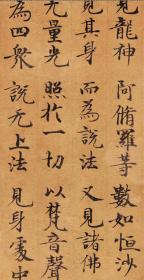 見龍神 阿脩羅等 數如恒沙
見其身 而為說法 又見諸佛
无量光 照於一切 以梵音聲
為四眾 說无上法 見身處中